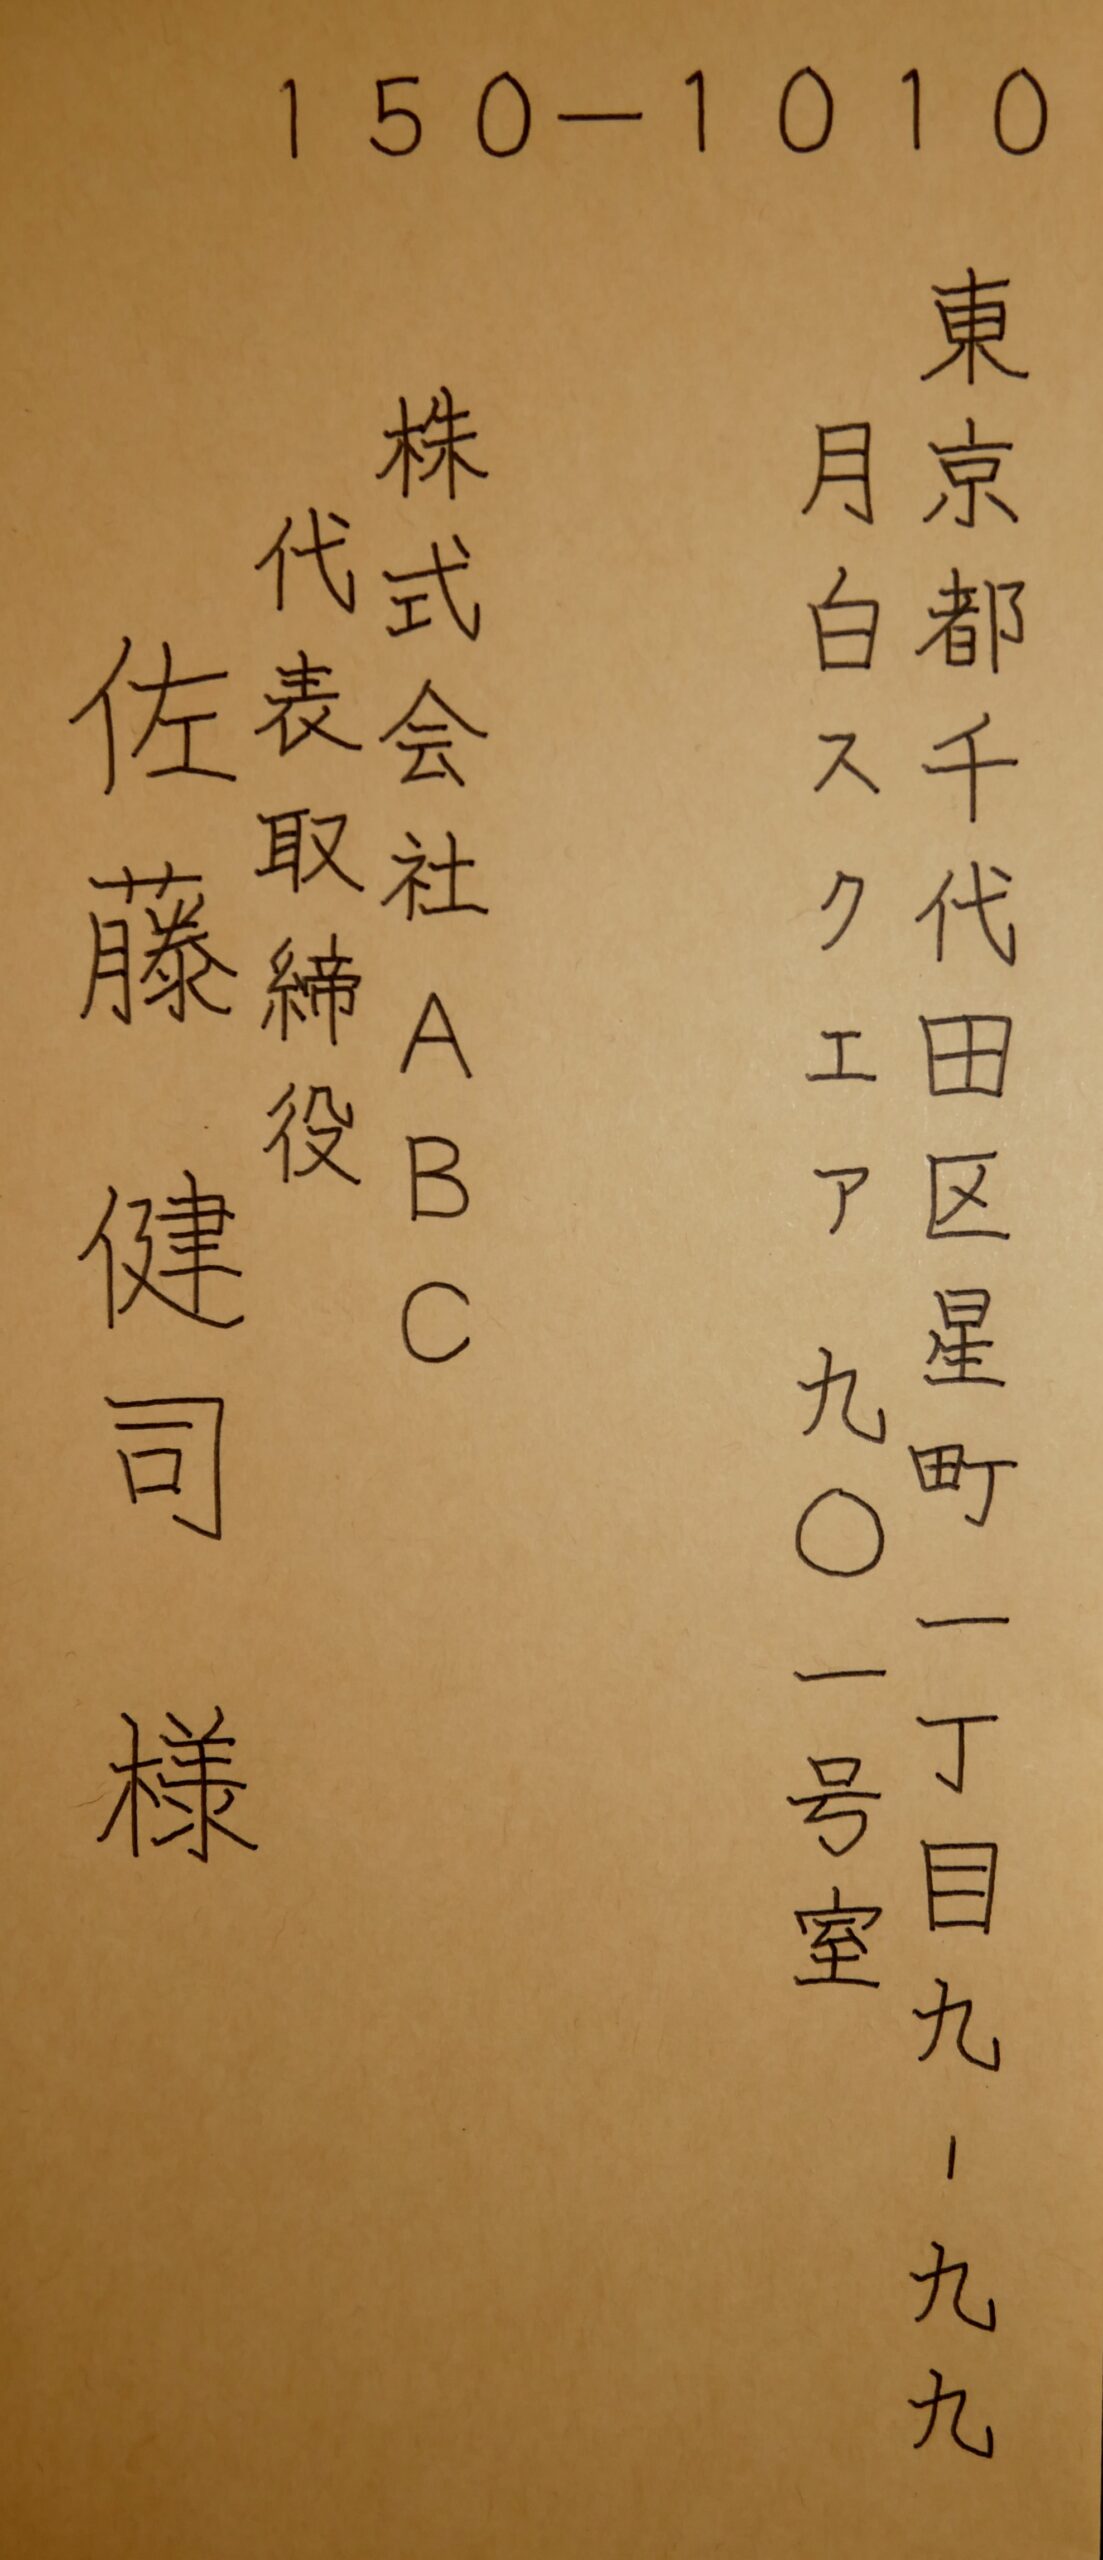 150-1010
東京都千代田区星町一丁目九-九九
月白スクエア 九〇一号室
株式会社ABC
代表取締役
佐藤 健司 様